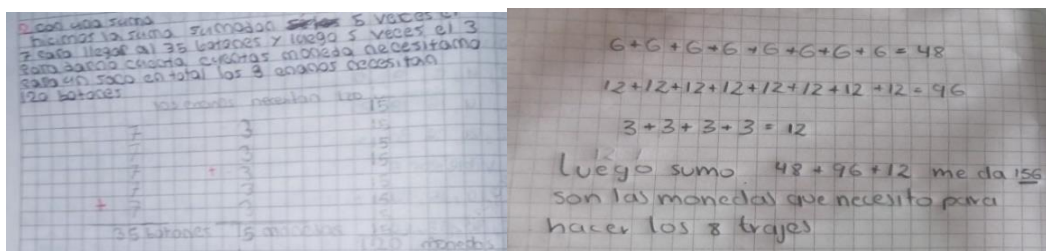 con una suma
hicimos la suma sumadon 5 veces el
7 para llegar al 35 botones y luego 5 veces el 3
para darno cuenta cuantas moneda necesitamo
para un saco en total los 8 enanos necesitan
120 botones
los enanos necesitan 120
7 3 15
7 3 15
7 3 15
7 + 3 15
7 3 15
+ 7 3 15
35 botones 15 monedas 15
120 monedas
6+6+6+6+6+6+6+6=48
12+12+12+12+12+12+12+12=96
3+3+3+3=12
12
luego sumo 48+96+12 me da 156
son las monedas que necesito para
hacer los 8 trajes